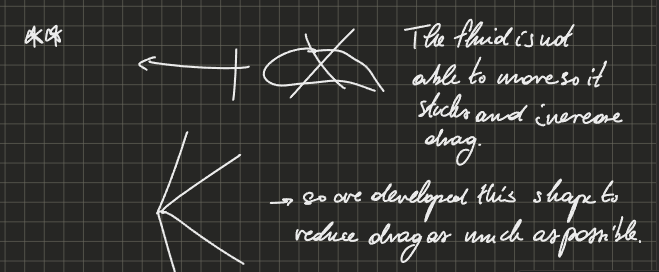 **
The fluid is not
able to move so it
sticks and increase
drag.
→ so are developed this shape to
reduce drag as much as possible.